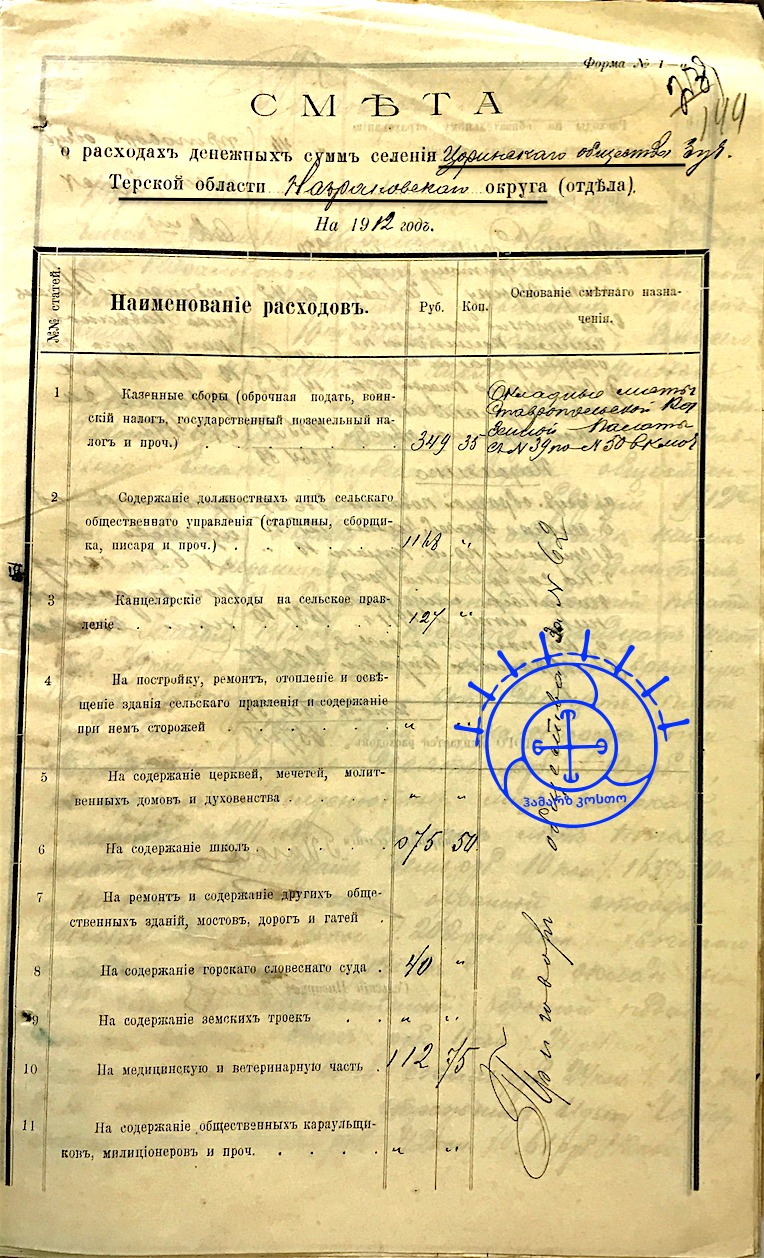 Форма № 1—а
144
СМѢТА
о расходахъ денежныхъ суммъ селенія Цоринскаго общества
Терской области Назрановскаго округа (отдѣла).
На 1912 годъ.
№№ статей.
Наименованіе расходовъ.
Руб.
Коп.
Основаніе смѣтнаго назна-
ченія.
1 Казенные сборы (оброчная подать, воин-
скій налогъ, государственный поземельный на-
логъ и проч.) . . . . . . . 349 35
Окладные листы
Ставропольской Ка
зенной Палаты
съ № 39 по № 50 включ
2 Содержаніе должностныхъ лицъ сельскаго
общественнаго управленія (старшины, сборщи-
ка, писаря и проч.) . . . . . "
3 Канцелярскіе расходы на сельское прав-
леніе . . . . . . . . 127 "
4 На постройку, ремонтъ, отопленіе и освѣ-
щеніе зданія сельскаго правленія и содержаніе
при немъ сторожей . . . . . " "
5 На содержаніе церквей, мечетей, молит-
венныхъ домовъ и духовенства . . . . " "
6 На содержаніе школъ . . . . . 50
7 На ремонтъ и содержаніе другихъ обще-
ственныхъ зданій, мостовъ, дорогъ и гатей .
8 На содержаніе горскаго словеснаго суда . 40 "
9 На содержаніе земскихъ троек . . " "
10 На медицинскую и ветеринарную часть . 112 75
11 На содержаніе общественныхъ караульщи-
ковъ, милиціонеровъ и проч. . . . . " "
Приговоръ общества за № 62
ჰამარზ კოსთო